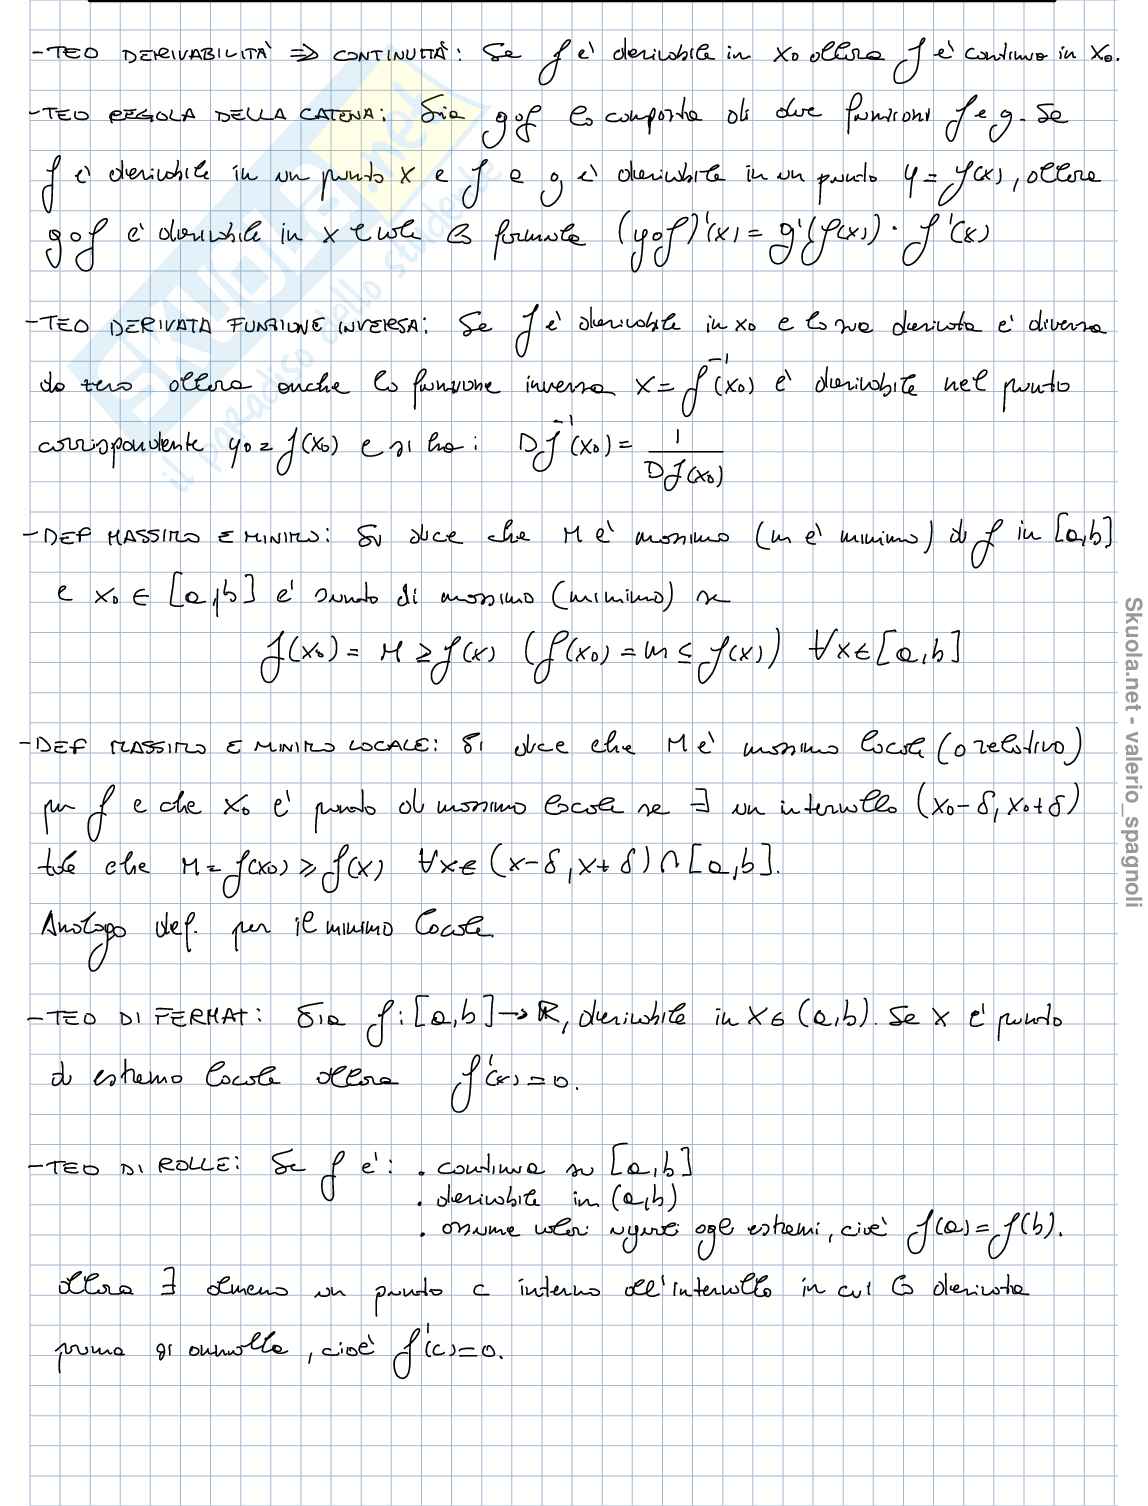 - TEO DERIVABILITÀ ⇒ CONTINUITÀ: Se f è derivabile in x₀ allora f è continua in x₀.
- TEO REGOLA DELLA CATENA: Sia g∘f la composta di due funzioni f e g. Se
f è derivabile in un punto x e f e g è derivabile in un punto y = f(x), allora
g∘f è derivabile in x e vale la formula (g∘f)'(x) = g'(f(x)) · f'(x)
- TEO DERIVATA FUNZIONE INVERSA: Se f è derivabile in x₀ e la sua derivata è diversa
da zero allora anche la funzione inversa x = f⁻¹(x₀) è derivabile nel punto
corrispondente y₀ = f(x₀) e si ha: Df⁻¹(x₀) = 1 / Df(x₀)
- DEF MASSIMO E MINIMO: Si dice che M è massimo (m è minimo) di f in [a,b]
e x₀ ∈ [a,b] è punto di massimo (minimo) se
f(x₀) = M ≥ f(x) (f(x₀) = m ≤ f(x)) ∀x ∈ [a,b]
- DEF MASSIMO E MINIMO LOCALE: Si dice che M è massimo locale (o relativo)
per f e che x₀ è punto di massimo locale se ∃ un intervallo (x₀-δ, x₀+δ)
tale che M = f(x₀) ≥ f(x) ∀x ∈ (x-δ, x+δ) ∩ [a,b].
Analogo def. per il minimo locale
- TEO DI FERMAT: Sia f: [a,b] → ℝ, derivabile in x ∈ (a,b). Se x è punto
di estremo locale allora f'(x) = 0.
- TEO DI ROLLE: Se f è: . continua su [a,b]
. derivabile in (a,b)
. assume valori uguali agli estremi, cioè f(a) = f(b).
allora ∃ almeno un punto c interno all'intervallo in cui la derivata
prima si annulla, cioè f'(c) = 0.
SKUOLA.net
il paradiso dello studente
Skuola.net - valerio_spagnoli